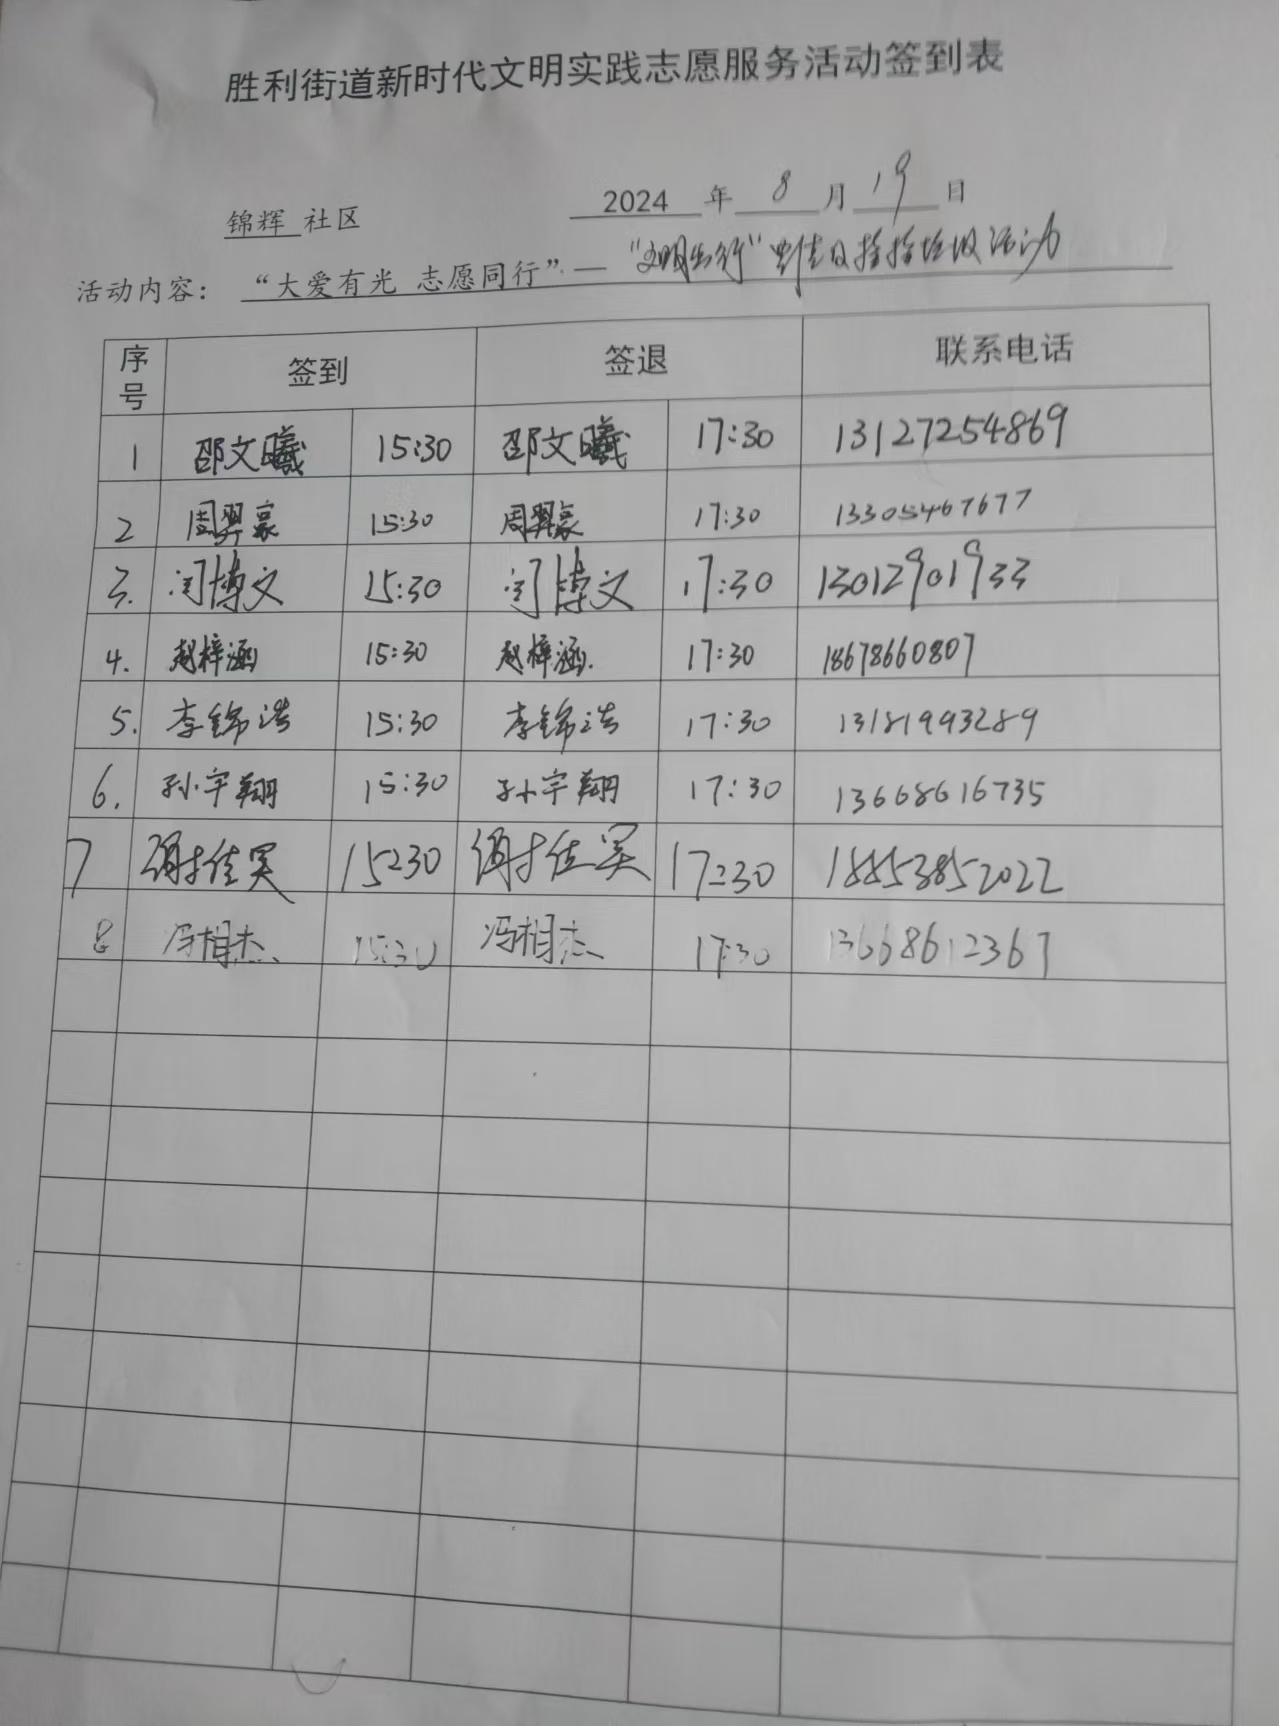 胜利街道新时代文明实践志愿服务活动签到表
锦辉 社区 2024 年 8 月 19 日
活动内容： “大爱有光 志愿同行”— “文明出行” 活动
序号 签到 签退 联系电话
1 邵文曦 15:30 邵文曦 17:30 13127254869
2 周羿豪 15:30 周羿豪 17:30 13305467677
3. 闫博文 15:30 闫博文 17:30 13012901933
4. 赵梓涵 15:30 赵梓涵. 17:30 18678660807
5. 李锦浩 15:30 李锦浩 17:30 13181993289
6. 孙宇翔 15:30 孙宇翔 17:30 13668616735
7 谢佳昊 15:30 谢佳昊 17:30 18853852022
8 冯相杰 15:30 冯相杰 17:30 13668612367